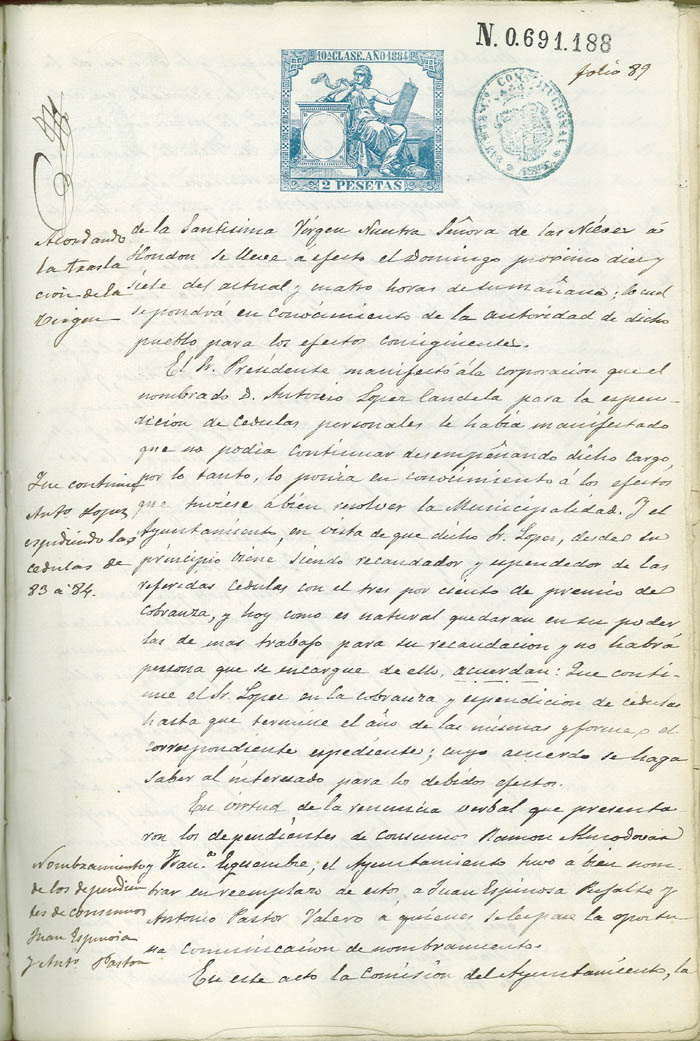 N. 0.691.188
folio 89
10ª CLASE. AÑO 1884
2 PESETAS
CONSTITUCIONAL
Acordando
la trasla
ción de la
Virgen
de la Santísima Vírgen Nuestra Señora de las Nieves á
Hondon se lleve a efecto el Domingo próximo diez y
siete del actual y cuatro horas de su mañana; lo cual
se pondrá en conocimiento de la autoridad de dicho
pueblo para los efectos consiguientes.
El Sr. Presidente manifestó á la corporacion que el
nombrado D. Antonio Lopez Candela para la espen-
dicion de cedulas personales le habia manifestado
que no podia continuar desempeñando dicho cargo,
por lo tanto, lo ponia en conocimiento á los efectos
que tuviese á bien resolver la Municipalidad. Y el
Ayuntamiento, en vista de que dicho Sr. Lopez, desde su
principio viene siendo recaudador y espendedor de las
referidas cedulas con el tres por ciento de premio de
cobranza, y hoy como es natural quedaran en su poder
las de mas trabajo para su recaudacion y no habrá
persona que se encargue de ello, acuerdan: Que conti-
nue el Sr. Lopez en la cobranza y espendicion de cedulas
hasta que termine el año de las mismas y forme el
correspondiente espediente; cuyo acuerdo se haga
saber al interesado para lo debidos efectos.
Que continue
Antº Lopez
espidiendo las
cedulas de
83 á 84.
En virtud de la renuncia verbal que presenta
ron los dependientes de consumos Ramon Almodovar
y Fran.co, el Ayuntamiento tuvo á bien nom-
trar en reemplazo de estos á Juan Espinosa y
Antonio Pastor Valero á quienes se les pase la oportu
na comunicacion de nombramiento.
Nombramiento
de los dependien
tes de consumos
Juan Espinosa
y Antº Pastor
En este acto la Comisión del Ayuntamiento, la